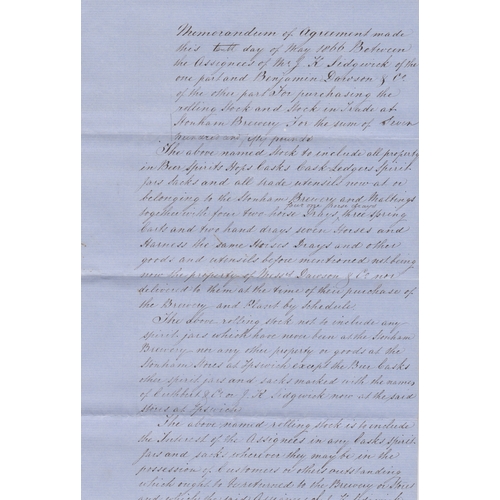 Memorandum of Agreement made
this day of May 1866 Between
the Assignees of Mr J. K. Sedgwick of the
one part and Benjamin Dawson & Co
of the other part For purchasing the
rolling Stock and Stock in Trade at
Stonham Brewery For the sum of Seven
hundred and fifty pounds
The above named Stock to include all property
in Beer Spirits Hops Casks Cask Ledgers Spirit
jars Sacks and all trade utensils now at or
belonging to the Stonham Brewery and Maltings
together with four two horse Drays, three Spring
Carts and two hand drays seven Horses and
Harness the same Horses Drays and other
goods and utensils before mentioned not being
now the property of Messrs Dawson & Co nor
delivered to them at the time of their purchase of
the Brewery and Plant by Schedule.
The above rolling stock not to include any
spirit jars which have never been at the Stonham
Brewery nor any other property or goods at the
Stonham Stores at Ipswich except the Beer Casks
other spirit jars and sacks marked with the names
of Cuthbert & Co or J. K Sedgwick now at the said
stores at Ipswich
The above named rolling stock is to include
the Interest of the Assignees in any Casks spirit
jars and sacks wherever they may be in the
possession of Customers or others outstanding
which ought to be returned to the Brewery or Stores